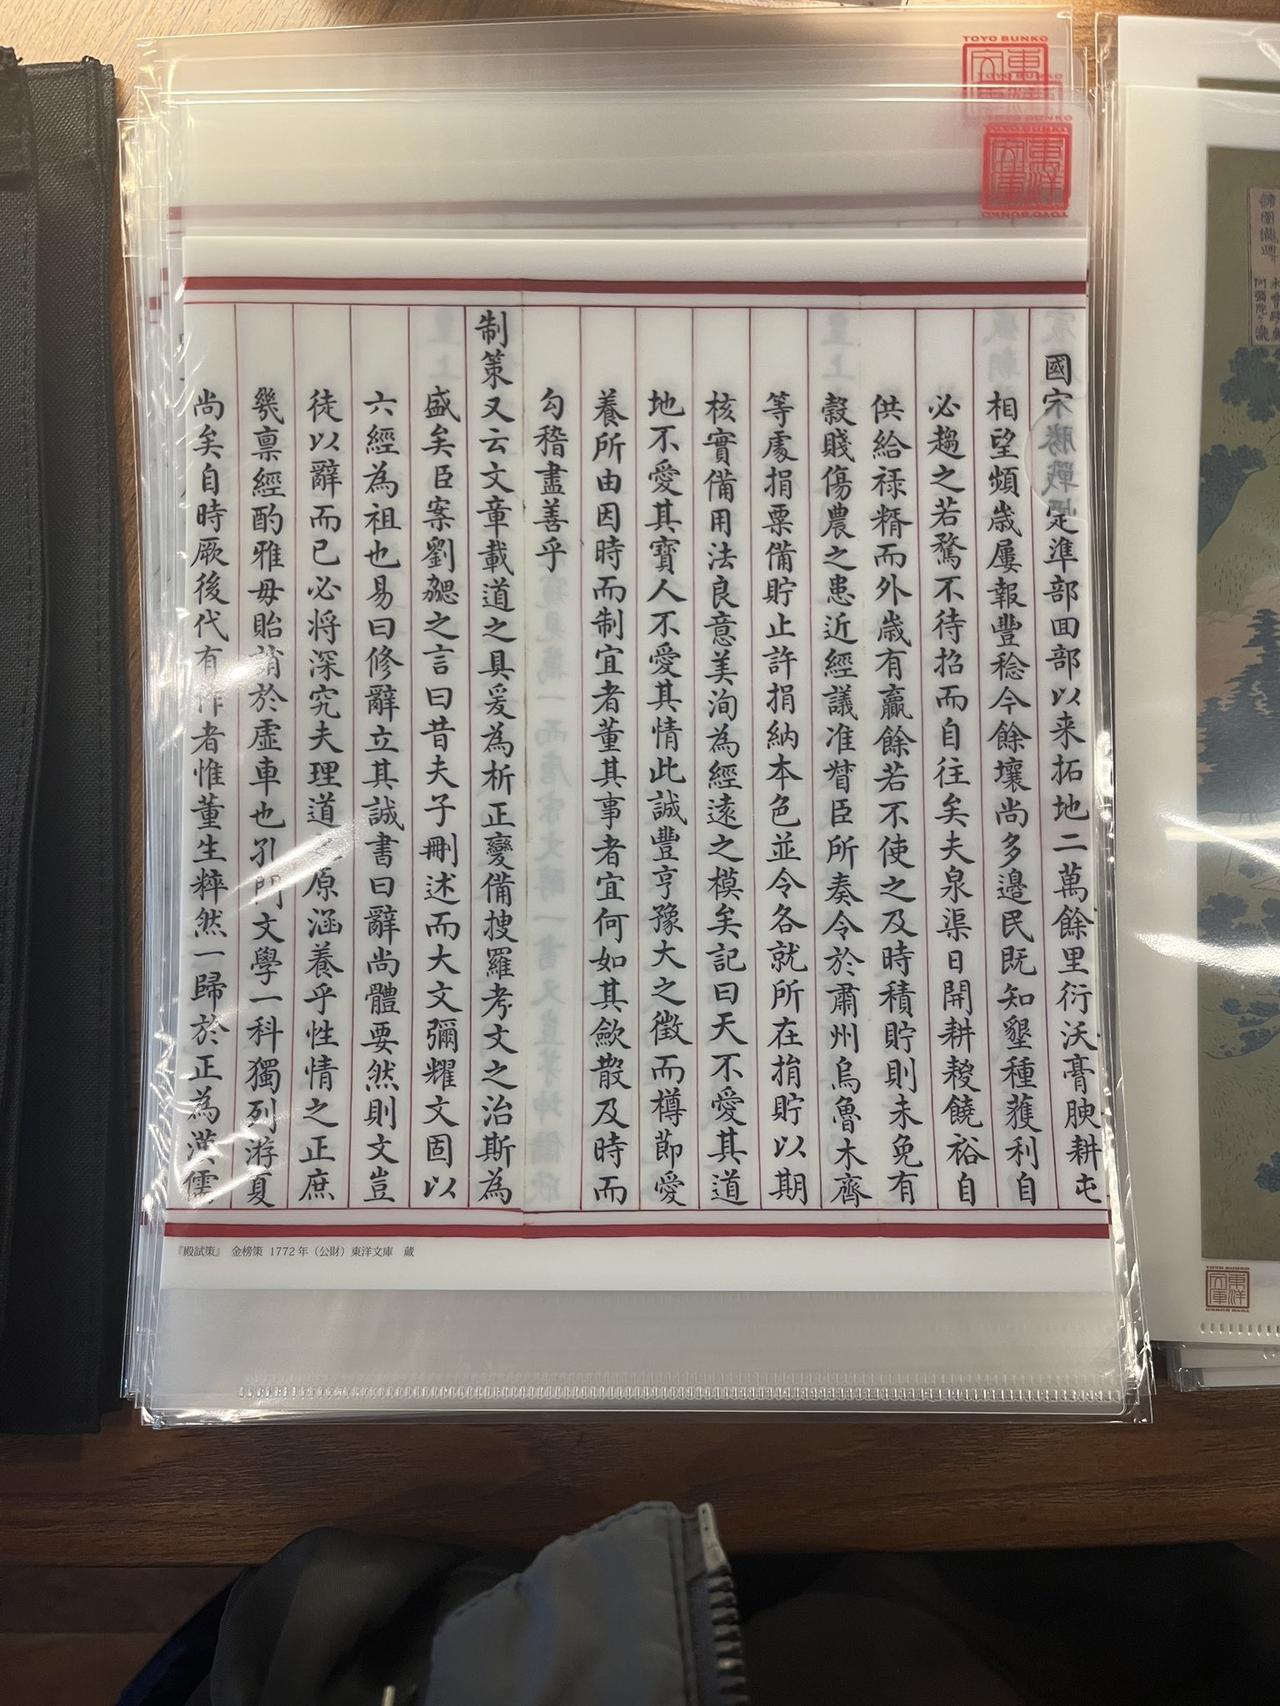 TOYO BUNKO
TOYO BUNKO
東洋文庫
國家勝戰定準部回部以来拓地二萬餘里衍沃膏腴耕屯
相望頻歲屢報豐稔今餘壤尚多邊民既知墾種蓰利自
必趨之若鶩不待招而自往矣夫泉渠日開耕穫饒裕自
供給祿糈而外歲有贏餘若不使之及時積貯則未免有
穀賤傷農之患近經議准督臣所奏令於肅州烏魯木齊
等處捐粟備貯止許捐納本色並令各就所在捐貯以期
核實備用法良意美洵為經遠之模矣記曰天不愛其道
地不愛其寶人不愛其情此誠豐亨豫大之徵而樽節愛
養所由因時而制宜者董其事者宜何如其斂散及時而
勾稽盡善乎
制策又云文章載道之具爰為析正變備搜羅考文之治斯為
盛矣臣案劉勰之言曰昔夫子刪述而大文彌耀文固以
六經為祖也易曰修辭立其誠書曰辭尚體要然則文豈
徒以辭而已必將深究夫理道之原涵養乎性情之正庶
幾稟經酌雅毋貽誚於虛車也孔門文學一科獨列游夏
尚矣自時厥後代有作者惟董生粹然一歸於正為漢儒
『殿試策』 金榜策 1772年（公財）東洋文庫 蔵
TOYO BUNKO
東洋文庫